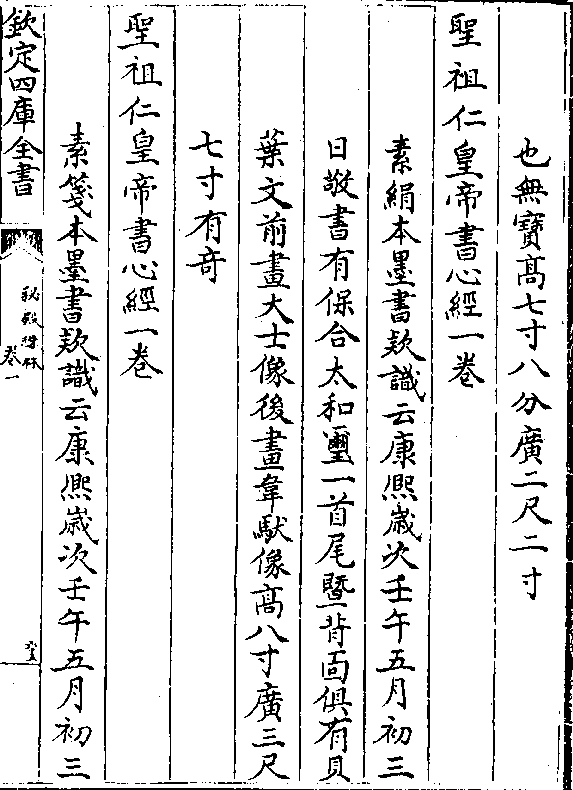 也無寳髙七寸八分廣二尺二寸
聖祖仁皇帝書心經一卷
素絹本墨書欵識云康熈嵗次壬午五月初三
日敬書有保合太和璽一首尾暨背面俱有貝
葉文前畫大士像後畫韋馱像髙八寸廣三尺
七寸有奇
聖祖仁皇帝書心經一卷
素箋本墨書欵識云康熈嵗次壬午五月初三
欽定四庫全書
秘殿珠林
卷一